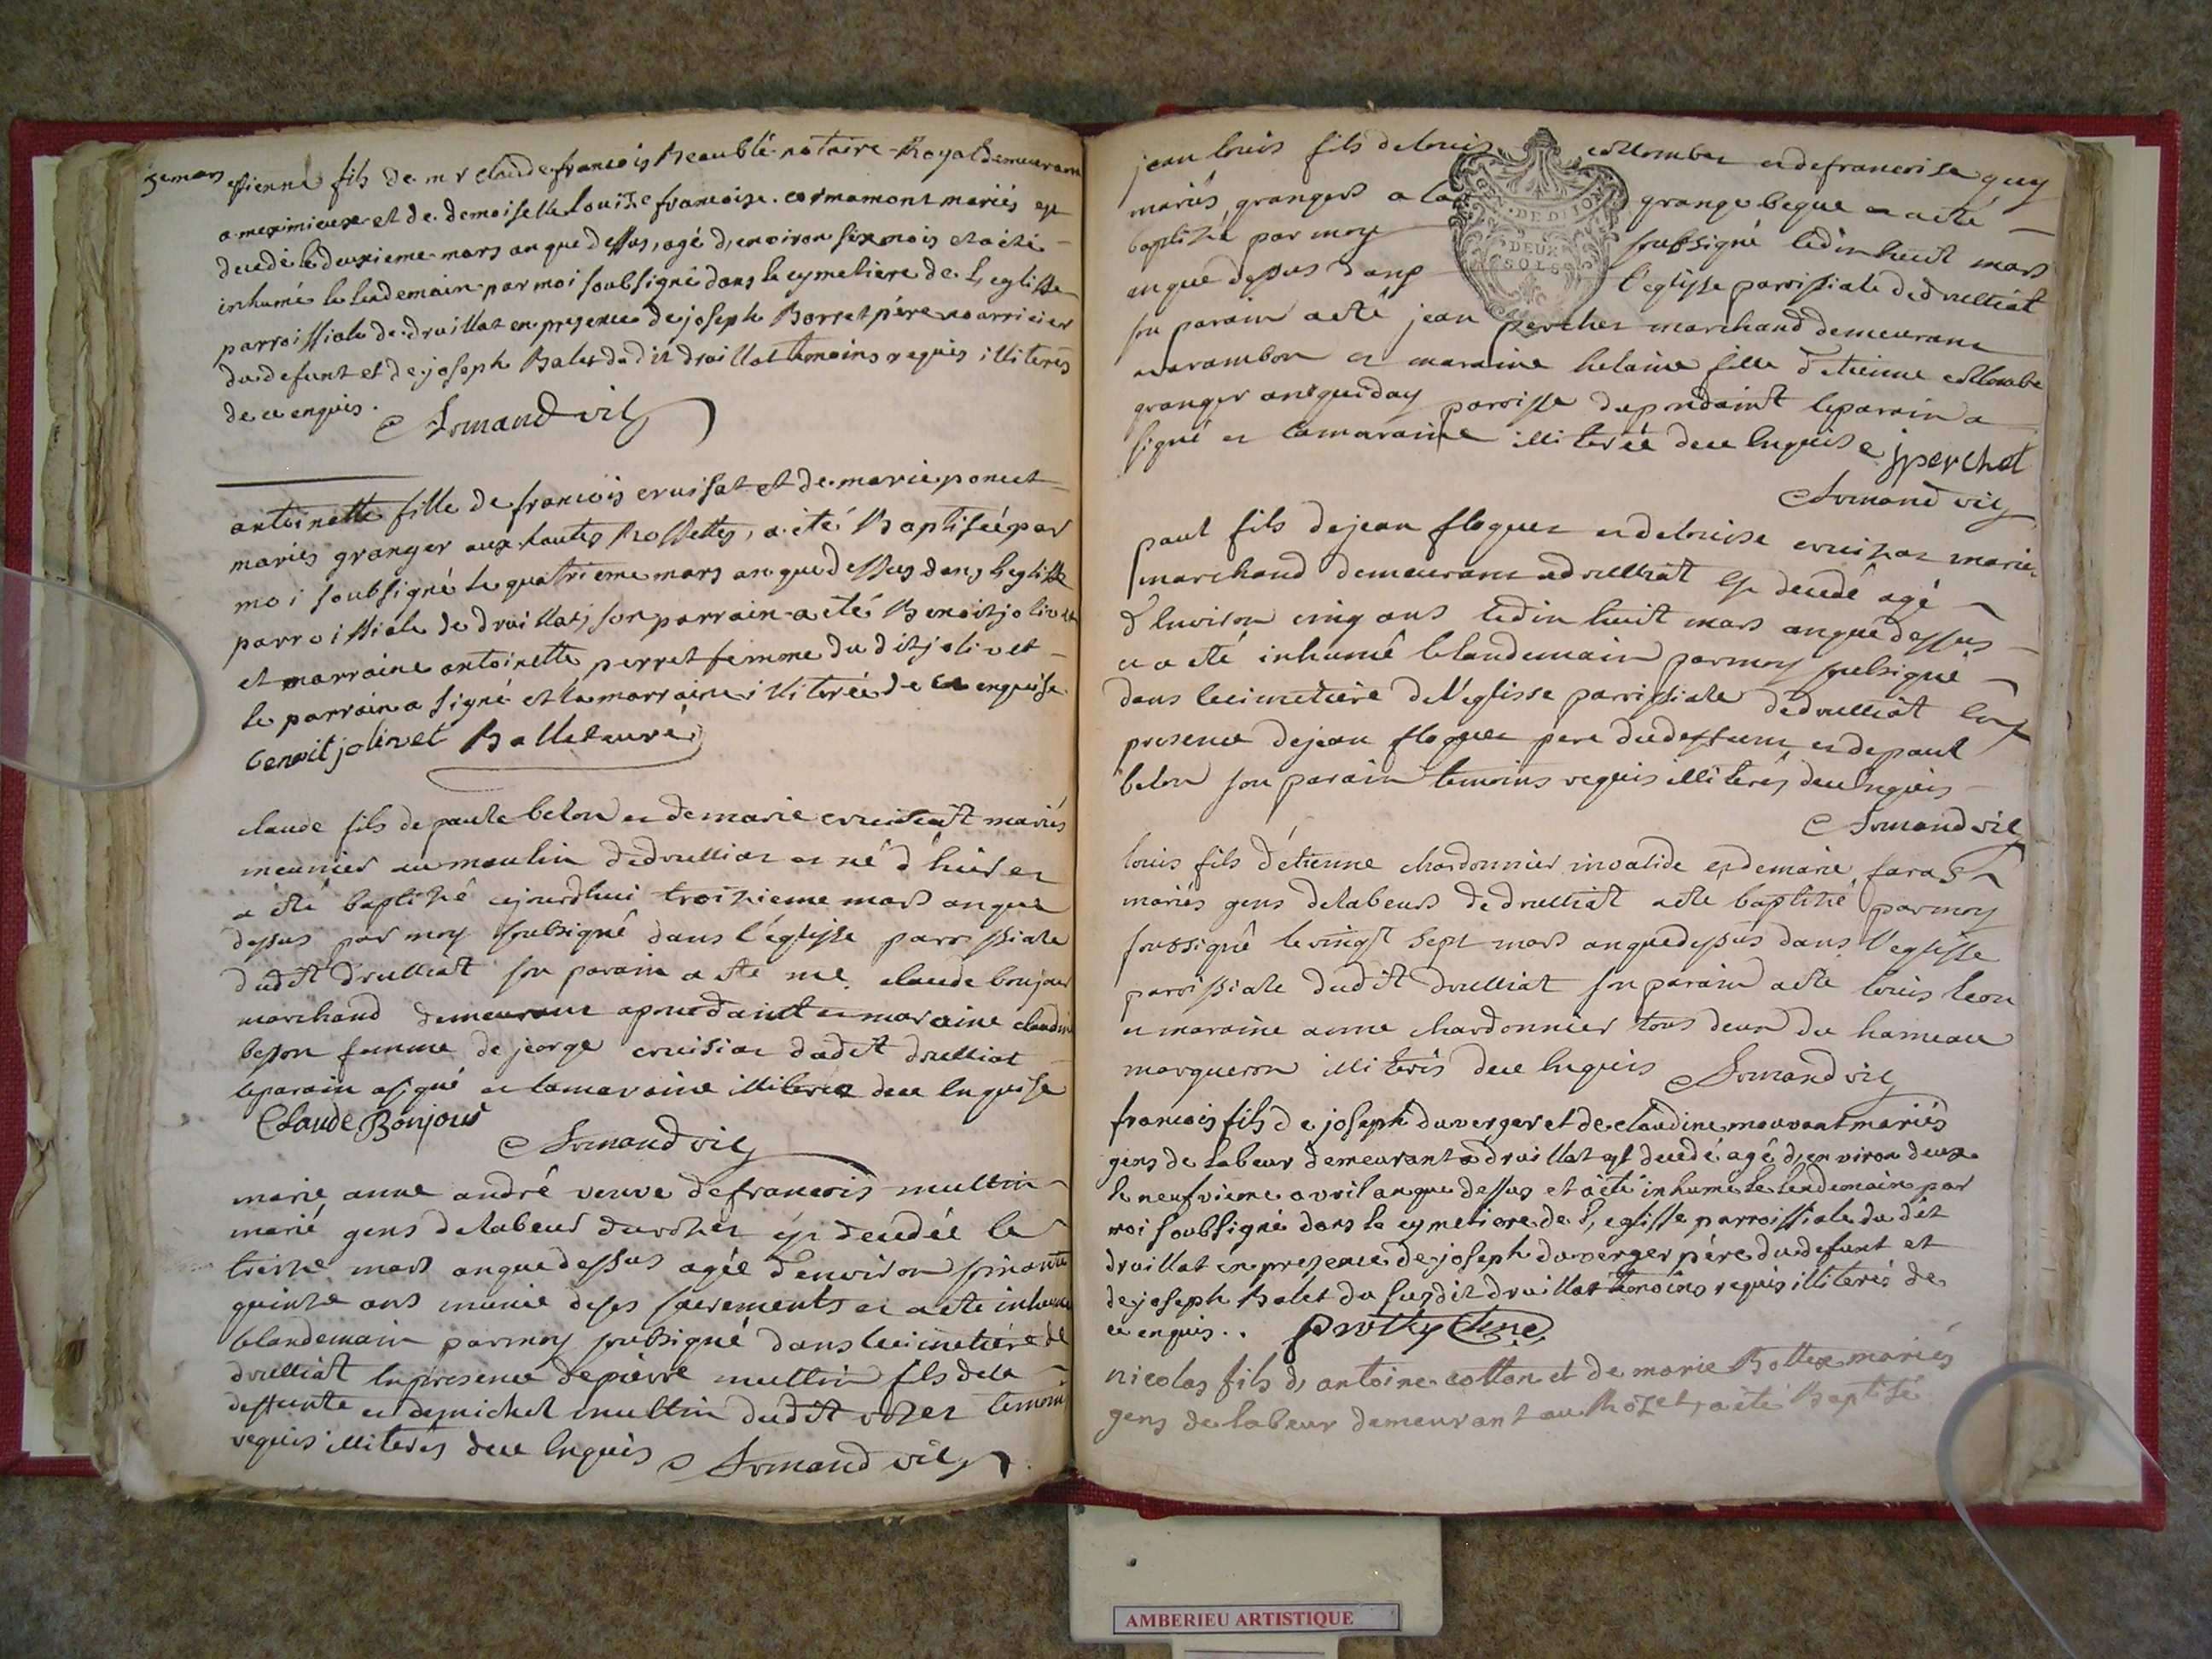 3e mars
etienne fils de mr claude francois Beaublé notaire Royal demeurant
a meximieux et de demoiselle Louize francoise cormamont mariés est
decedé le deuxieme mars an que dessus, agé d,environ six mois et a été
inhumé le lendemain par moi soubsigné dans le cymetiere de L,eglisse
parroissiale de druillat en presence de joseph Borret père nourricier
du defunt et de joseph Balet du dit druillat temoins requis illiterés
de ce enquis.
Armand vic
antoinette fille de francois cruisat et de marie poncet
mariés granger aux hautes Rossettes, a été Baptisée par
moi soubsigné le quatrieme mars an que dessus dans Leglisse
parroissiale de druillat, son parrain a été Benoit jolivet
et marraine antoinette perret femme du dit jolivet
le parrain a signé et la marraine illiterée de ce enquise
benoit jolivet
claude fils de paule belon et de marie cruiseat mariés
meunier au moulin de druilliat et né d'hier et
a été baptizé ajourdhui troizieme mars an que
dessus par moy soubsigné dans l'églysse parrissiale
dudit druilliat son parain a ete me claude bonjour
marchand demeurant apondaint et maraine claudine
besson femme de jeorge cruisiat dudit druilliat
le parain a signé et la maraine illiterée dece enquise
Claude Bonjour
Armand vic
marie anne andré veuve de francois multin
marié gens de labeur durozet est decedée le
treize mars an que dessus agée d'environ soixante
quinze ans munie de ses sacrements et a ete inhumé
le landemain par moy soubsigné dans le cimetiére de
druilliat en presence de pierre multin fils de la
deffunte et de michel multin dudit rozet temoins
requis illiterés de ce enquis Armand vic
jean louis fils de louis collombet et de francoise guy
mariés grangers a la grange begue et a eté
baptizé par moy soubsigné le dix huit mars
an que dessus dans l'eglysse parrissiale de druilliat
GEN. DE DIJON
DEUX
SOLS
son parain a eté jean perchet marchand demeurant
a varambon et maraine helaine fille d'etienne collombe
granger paroisse dupondaint le parain a
signé et la maraine illiterée de ce enquise jperchet
Armand vic
paul fils de jean floquet et de louise cruizat mariés
marchand demeurant a druilliat est decedé agé
d'environ cinq ans le dix huit mars an que dessus
et a eté inhumé le landemain par moy soubsigné
dans le cimetiére de l'eglisse parrissiale de druilliat en
presence de jean floquet pere du deffunt et de paul
belon son parain temoins requis illiterés de ce enquis
Armand vic
louis fils d'étienne chardonnier invalide et de marie
mariés gens de labeurs de druilliat a ete baptizé par moy
soussigné le vingt sept mars an que dessus dans l'eglisse
paroissiale dudit druilliat son parain a ete louis leon
et maraine anne chardonnier tous deux du hameau
marqueron illiterés de ce enquis Armand vic
francois fils de joseph duverger et de claudine mouvant mariés
gens de Labeur demeurant a druillat est decedé agé d,environ deux
le neufvieme avril an que dessus et a été inhumé le lendemain par
moi soubsigné dans le cymetiere de L,eglisse parroissiale du dit
druillat en presence de joseph duverger père du defunt et
de joseph Balet du susdit druillat temoins requis illiterés de
ce enquis..
nicolas fils d, antoine cottan et de marie Bottex mariés
gens de labeur demeurant au Rozet, a été Baptisé
AMBERIEU ARTISTIQUE